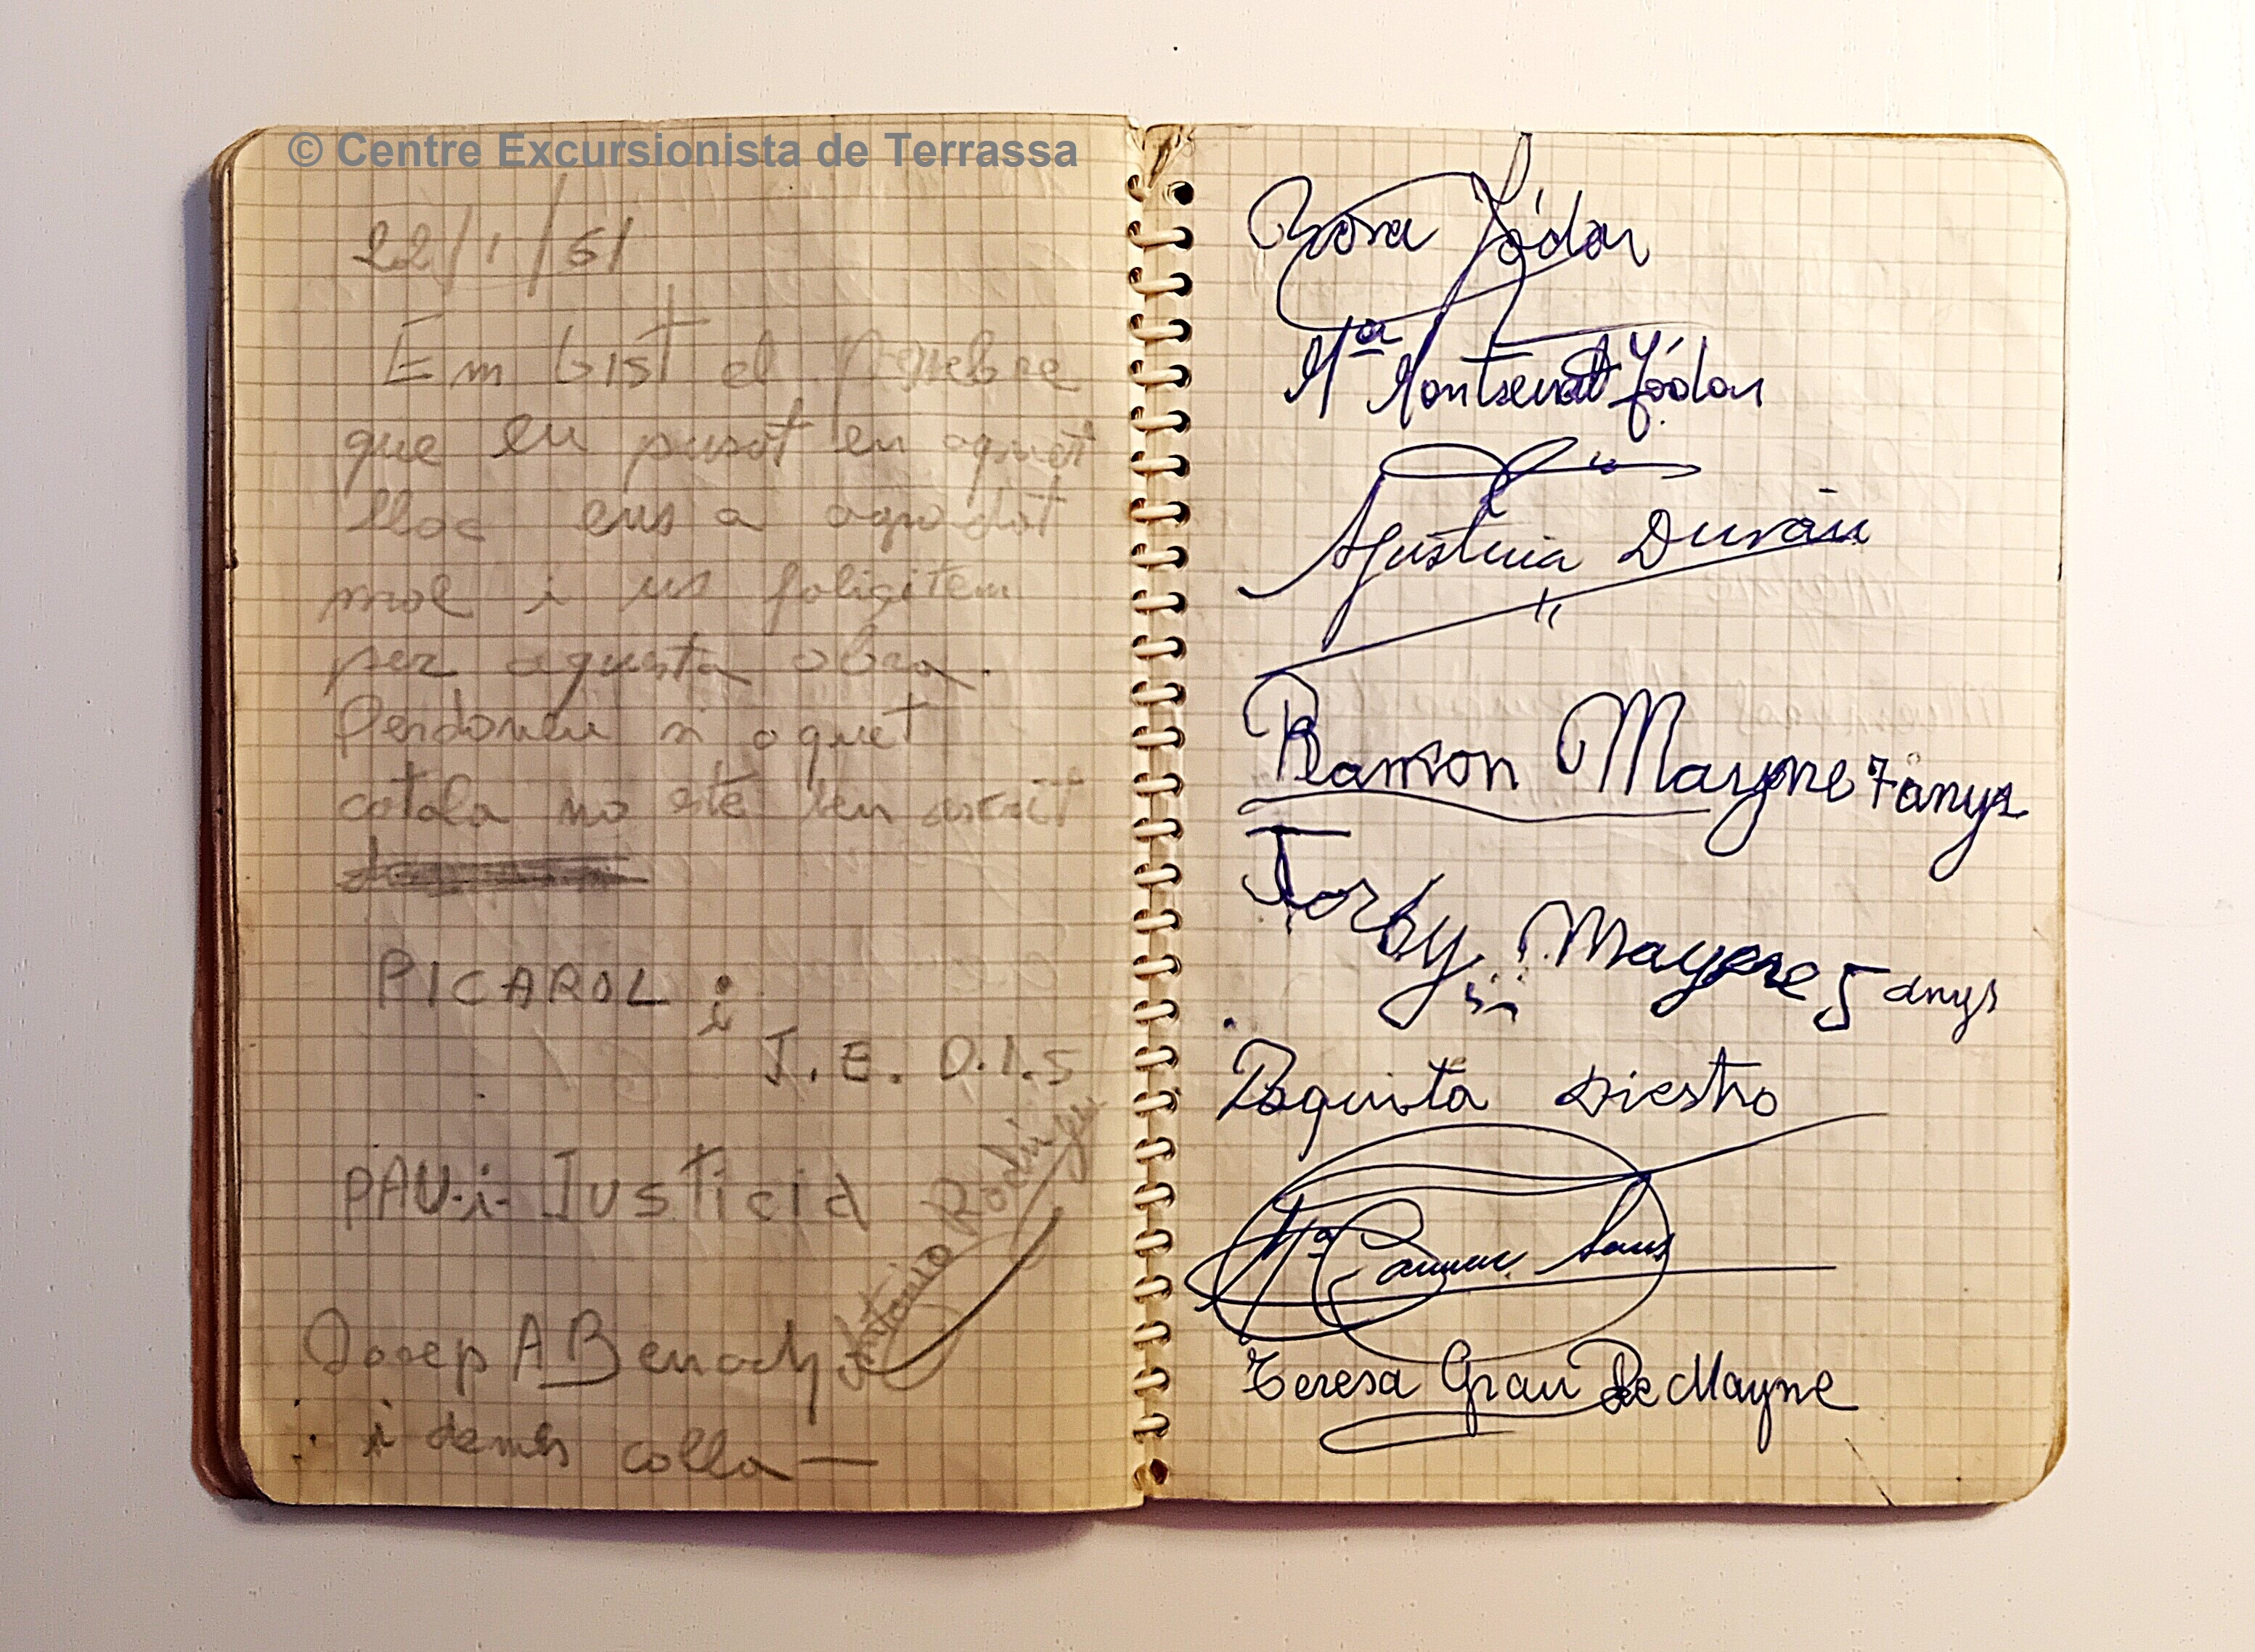 © Centre Excursionista de Terrassa
22/1/61
Em bist el pesebre
que eu pusat en aquet
lloc ens a agradat
mol i us feligitem
per aquesta obra.
Perdoneu si aquet
catala no esté ben escrit
PICAROL i
J.E.D.I.S
PAU-i-Justicia
Antonio Rodriguez
Josep A Benach
i demés colla —
Rosa Jódar
Mª Montserrat Jódar
Agustina Durán
Ramon Mayne 7 anys
Jordy Mayne 5 anys
Paquita Diestro
Mª Carmen Sans
Teresa Grau De Mayne